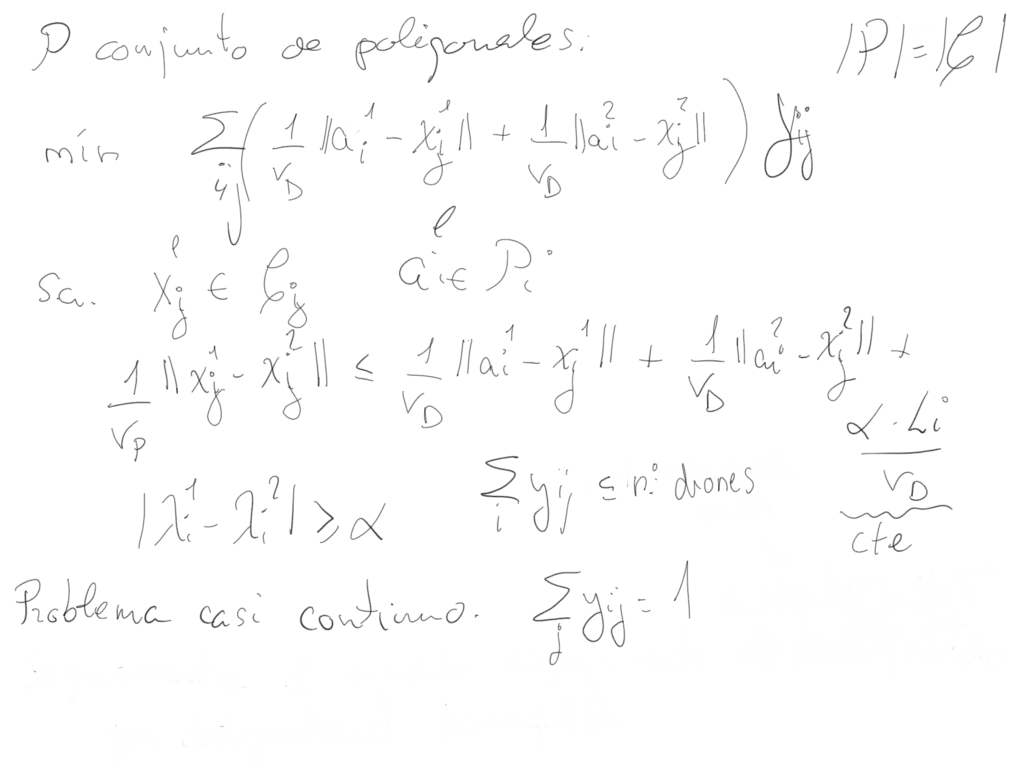 P conjunto de poligonales. |P|=|C|
mín ∑_{ij} ( 1/V_D ||a_i^1 - x_j^1|| + 1/V_D ||a_i^2 - x_j^2|| ) y_{ij}
sa. x_j^l ∈ C_j a_i^l ∈ P_i
1/V_P ||x_j^1 - x_j^2|| ≤ 1/V_D ||a_i^1 - x_j^1|| + 1/V_D ||a_i^2 - x_j^2|| + α·L_i/V_D
cte
|λ_i^1 - λ_i^2| ≥ α ∑_i y_{ij} ≤ nº drones
Problema casi continuo. ∑_j y_{ij} = 1